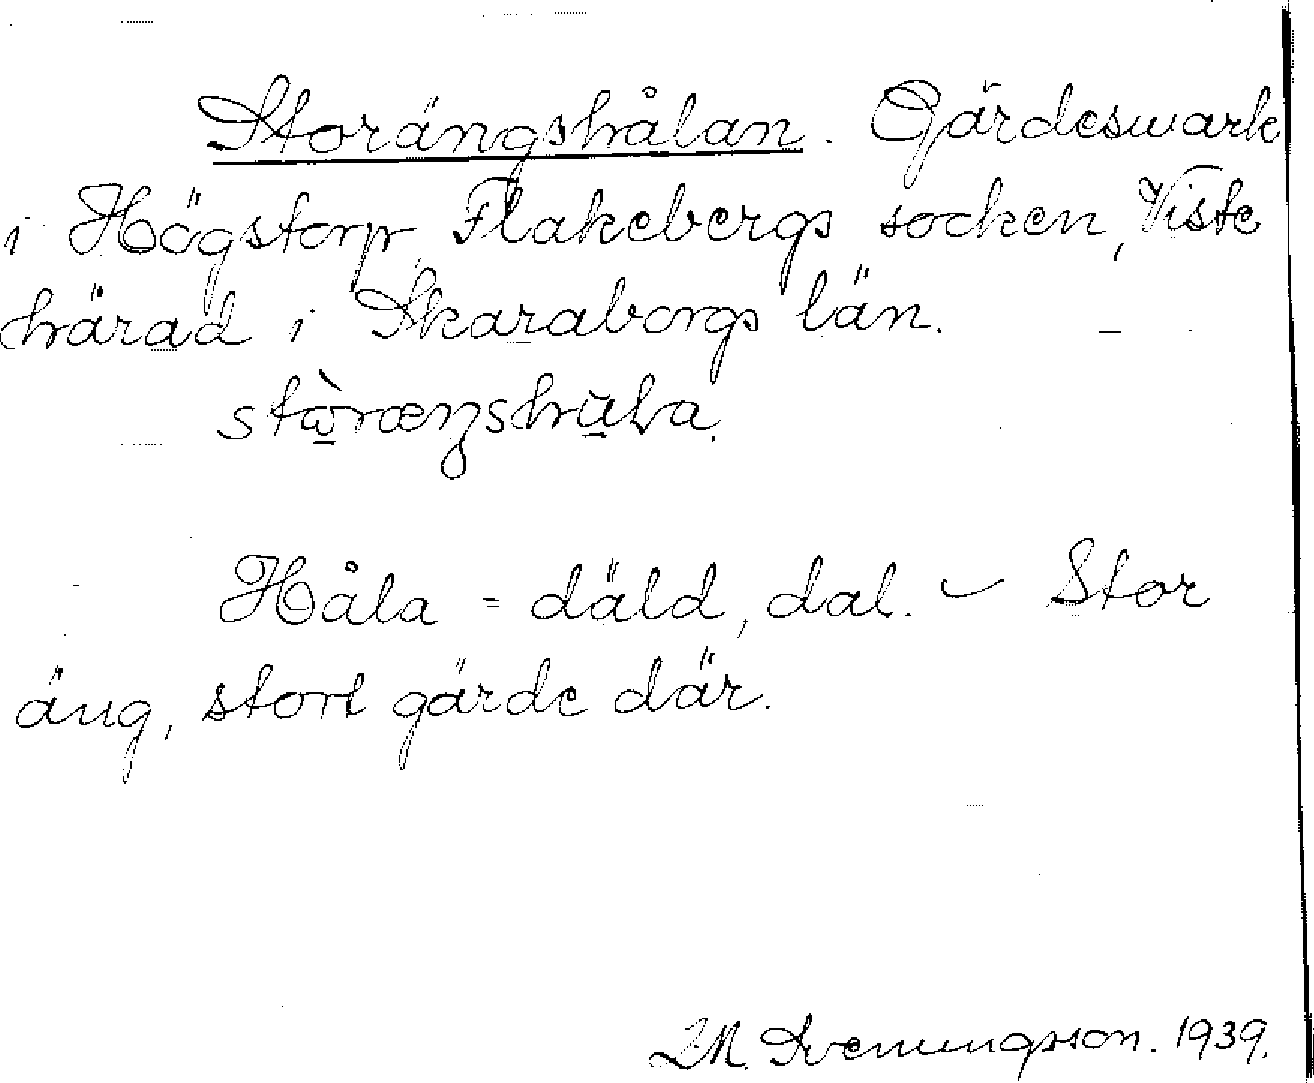 Storängshålan. Gärdesmark
i Högstorp, Flakebergs socken, Viste
härad i Skaraborgs län.
Håla = däld, dal. — Stor
äng, stort gärde där.
1939.